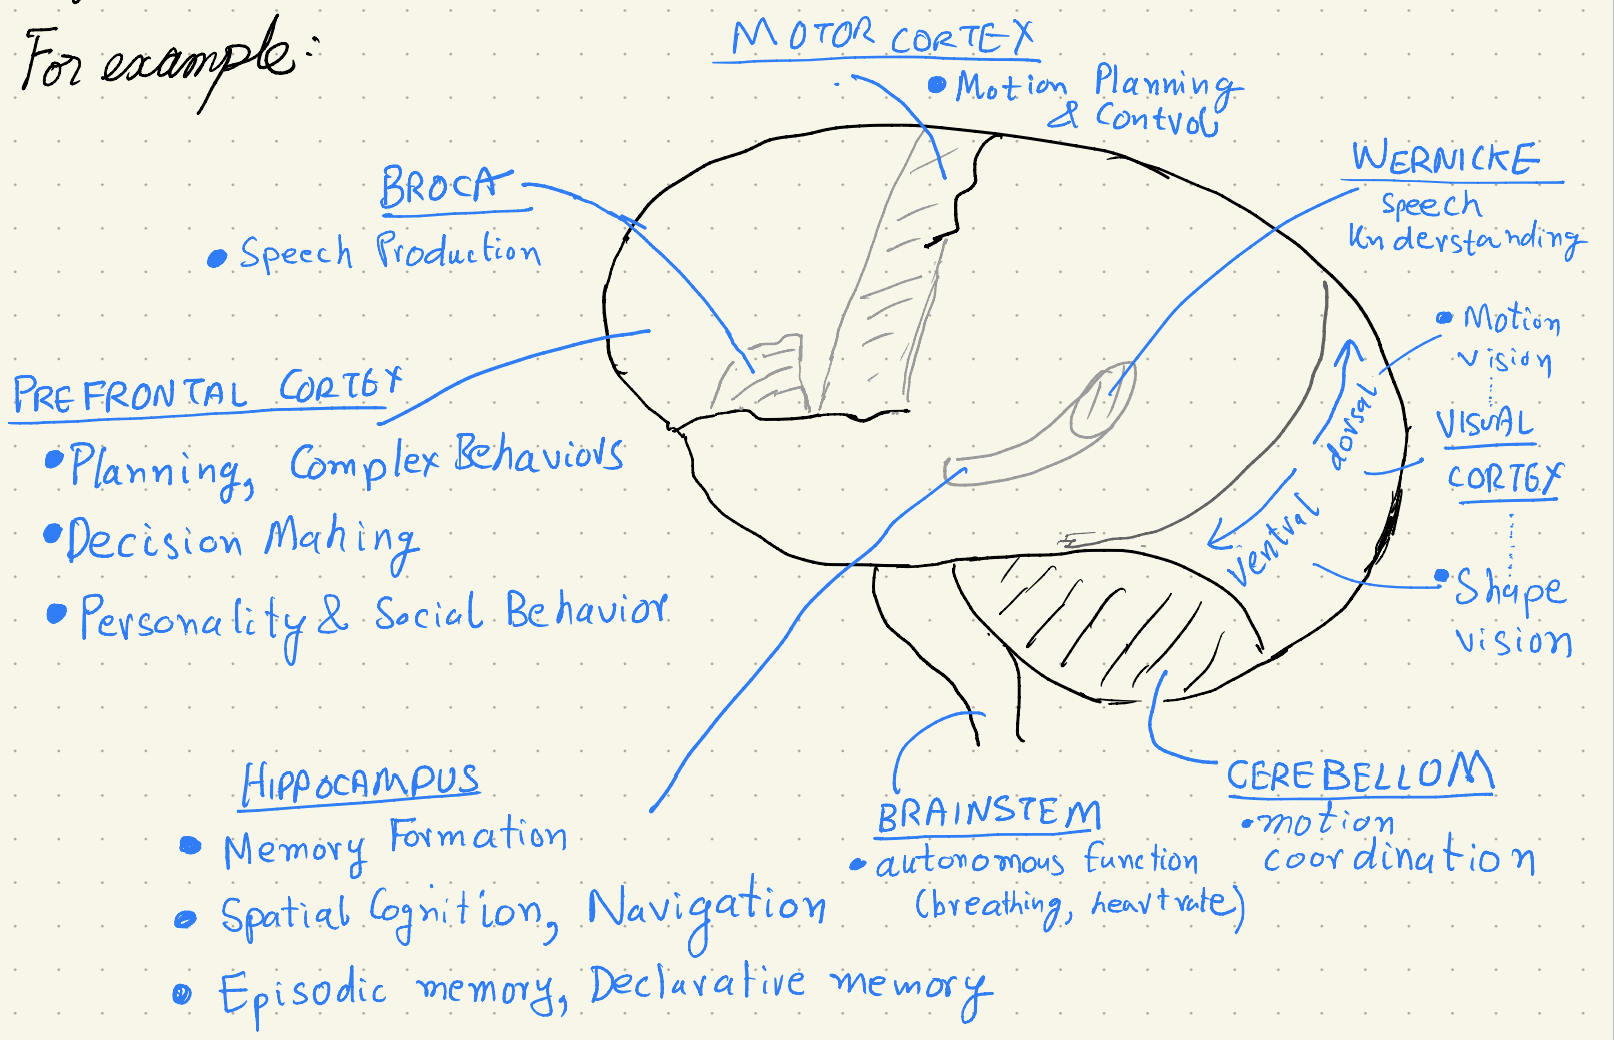 For example:
MOTOR CORTEX
• Motion Planning
& Control
BROCA
• Speech Production
WERNICKE
Speech
Understanding
PREFRONTAL CORTEX
• Planning, Complex Behaviors
• Decision Making
• Personality & Social Behavior
• Motion
vision
VISUAL
CORTEX
• Shape
vision
dorsal
ventral
HIPPOCAMPUS
• Memory Formation
• Spatial Cognition, Navigation
• Episodic memory, Declarative memory
BRAINSTEM
• autonomous function
(breathing, heart rate)
CEREBELLOM
• motion
coordination